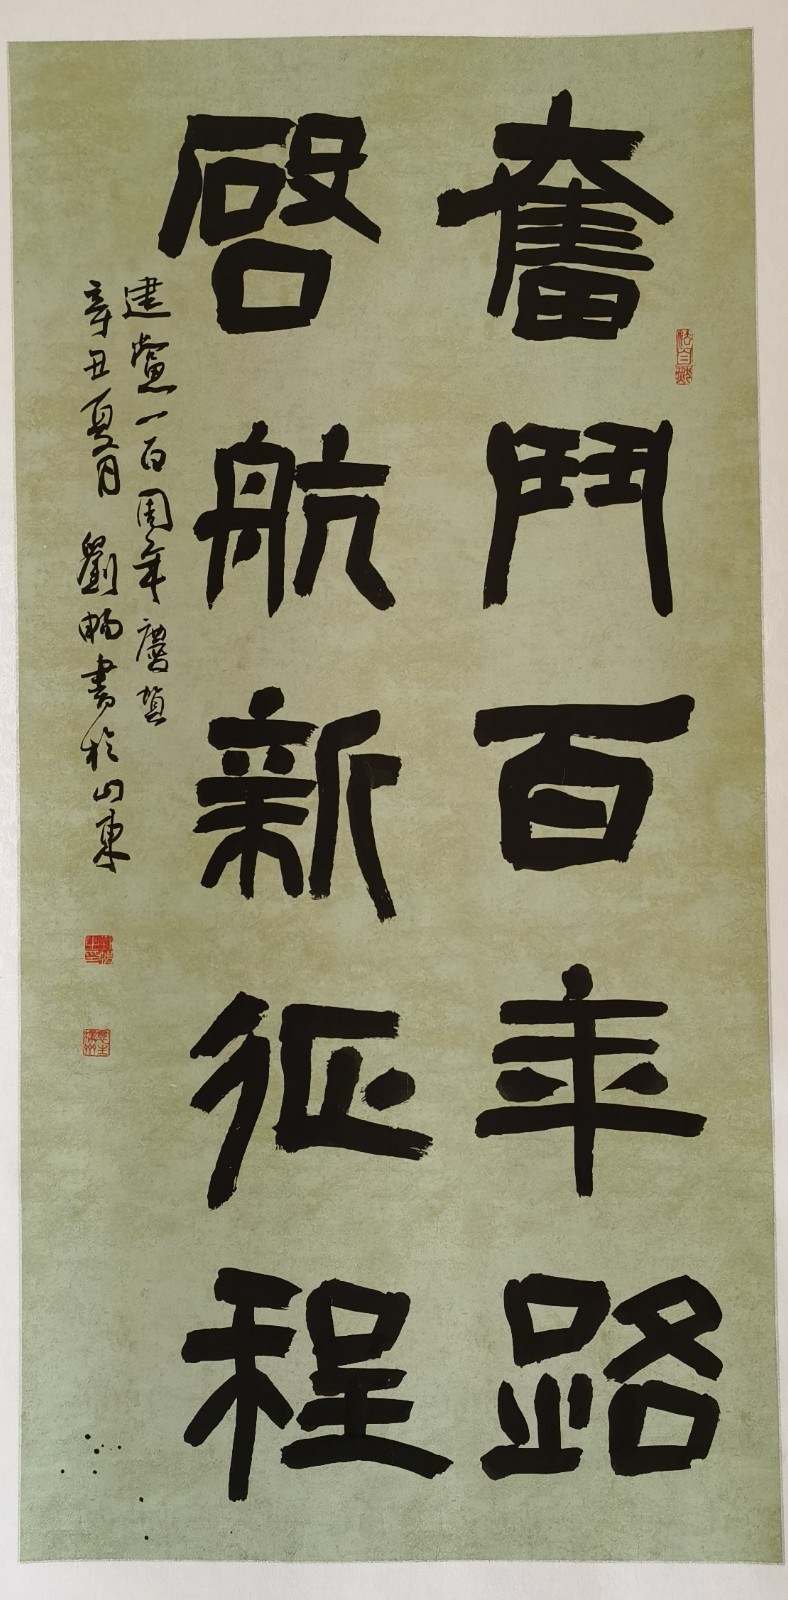 奮鬥百年路
啓航新征程
建黨一百周年慶賀
辛丑夏月劉暢書於山東